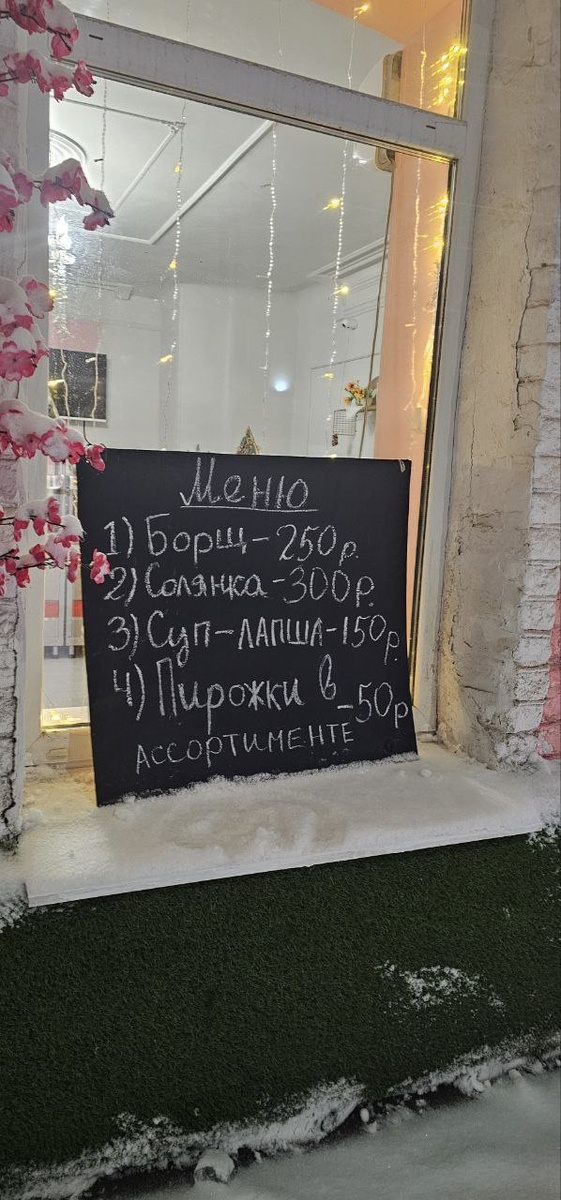 Меню
1) Борщ - 250 р.
2) Солянка - 300 р.
3) Суп - ЛАПША - 150 р.
4) Пирожки в - 50 р
АССОРТИМЕНТЕ